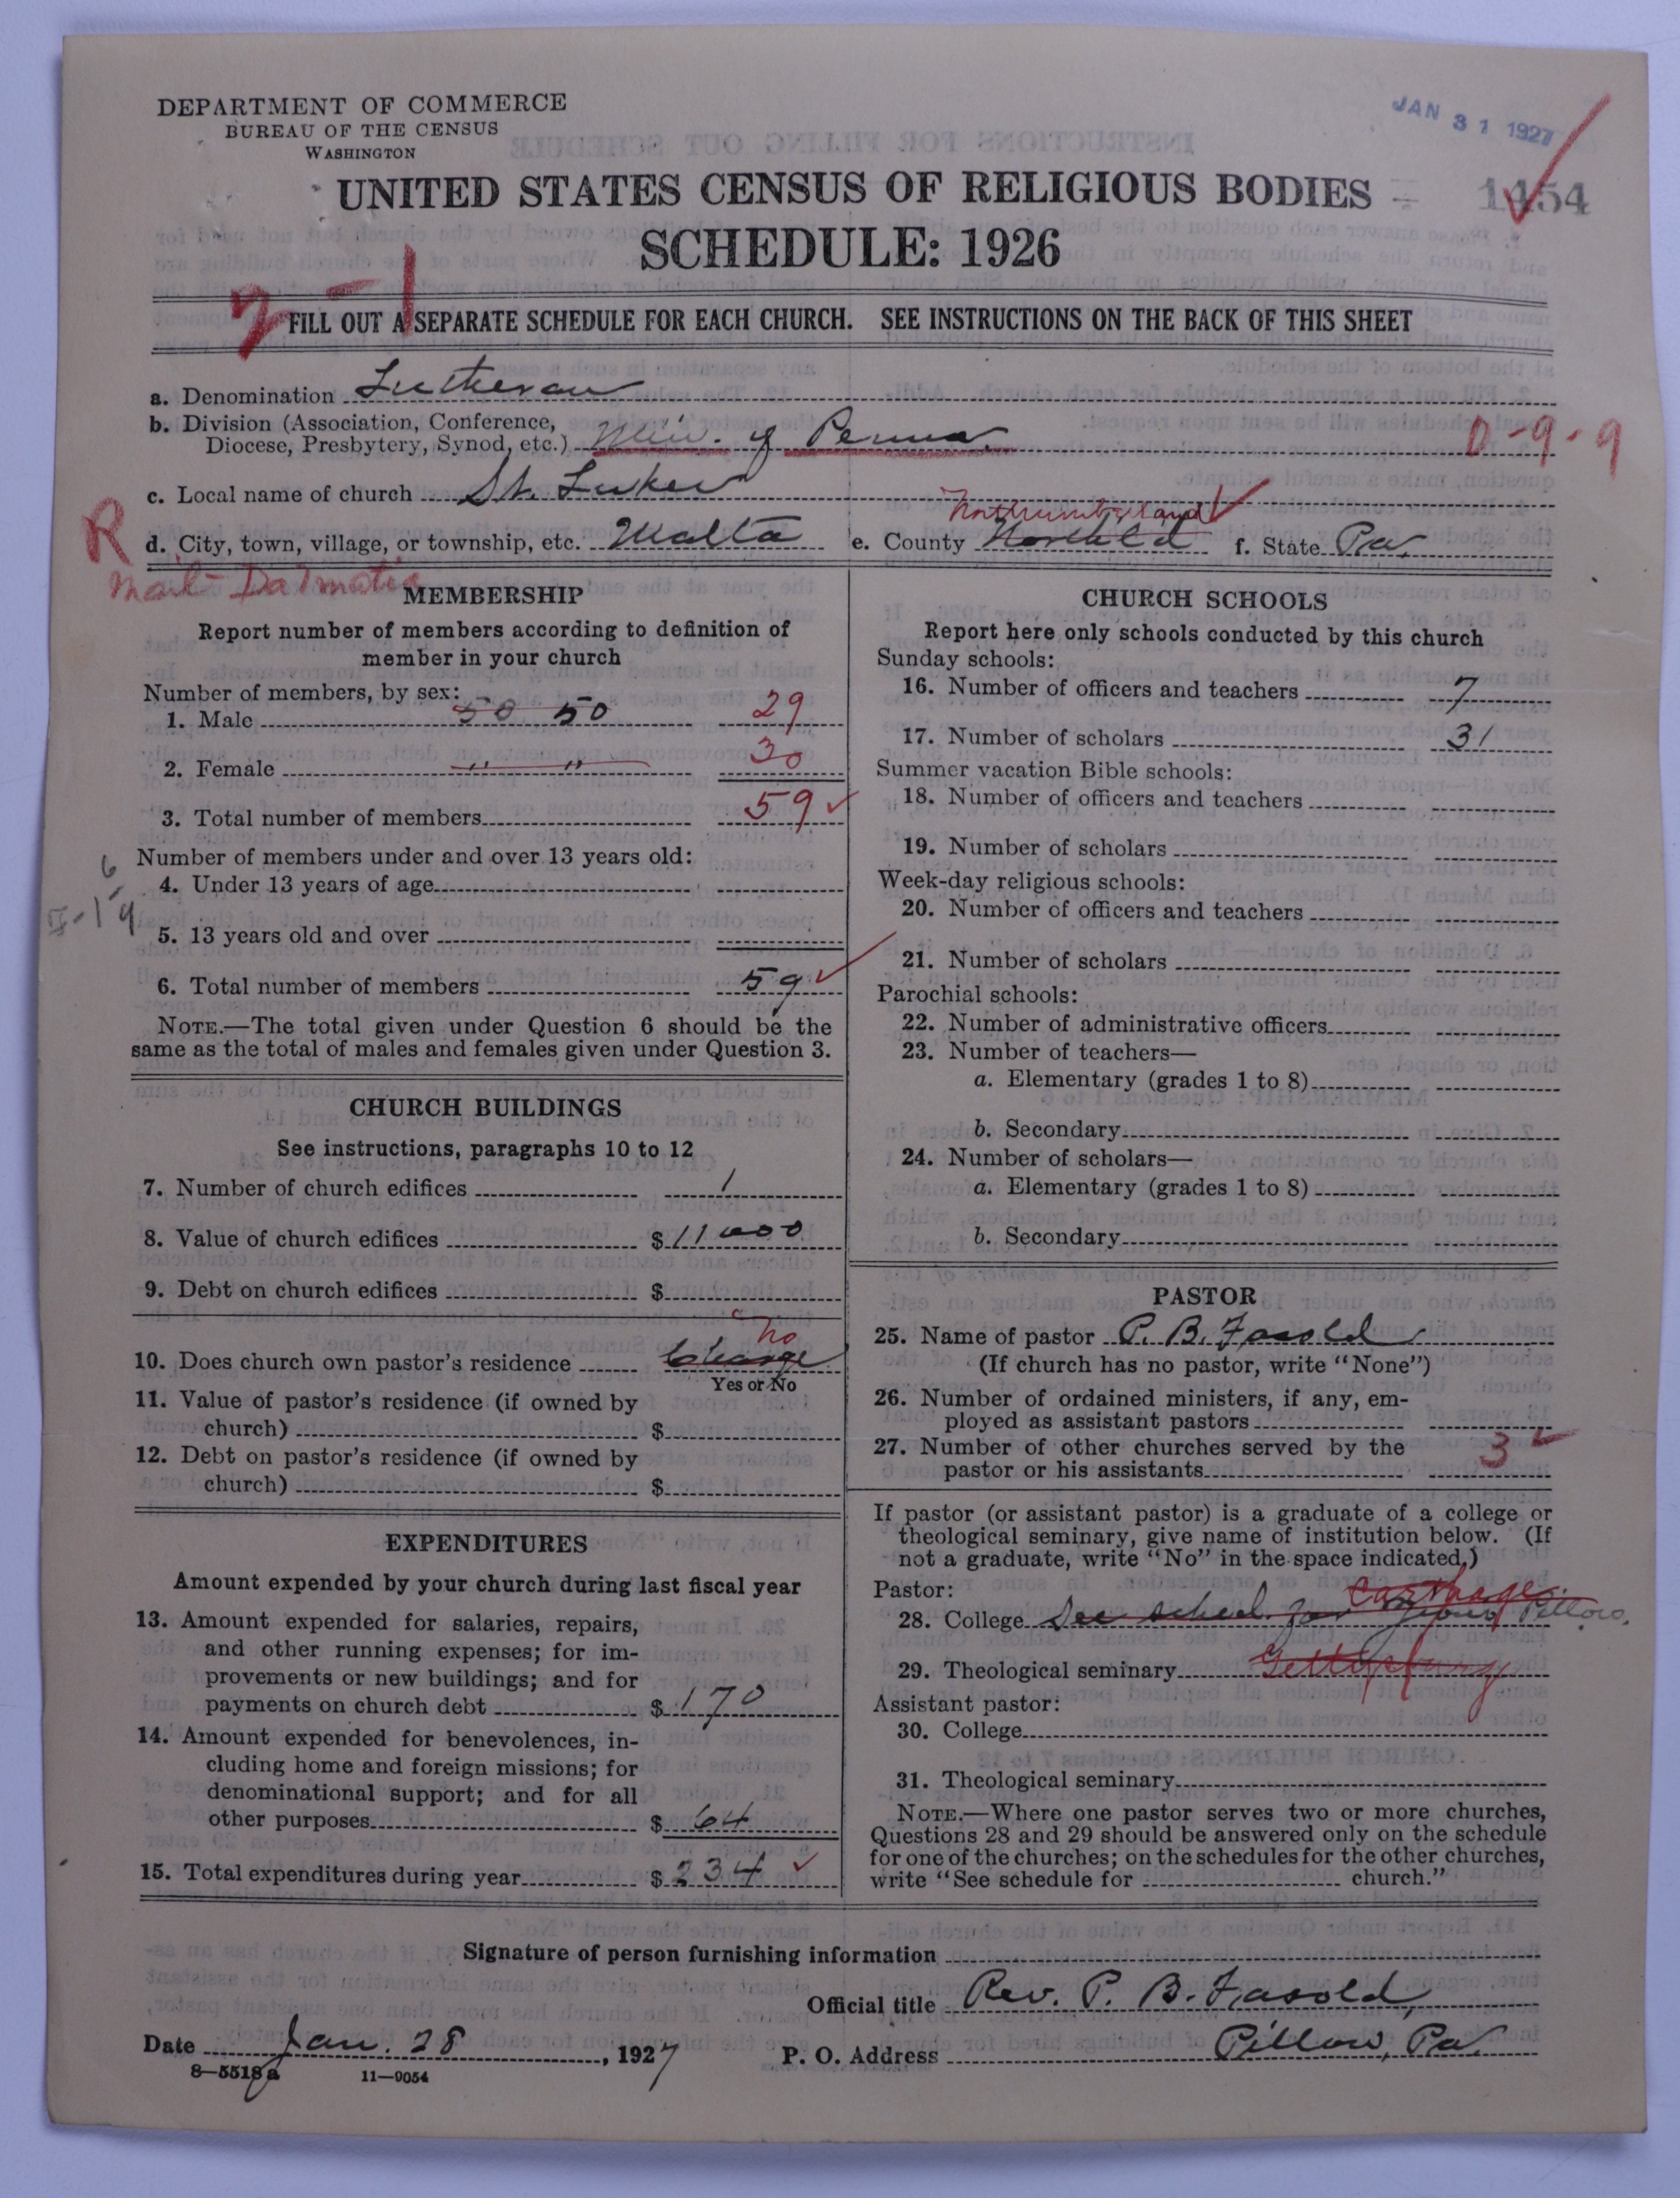 DEPARTMENT OF COMMERCE
BUREAU OF THE CENSUS
WASHINGTON
JAN 31 1927
UNITED STATES CENSUS OF RELIGIOUS BODIES
1454
SCHEDULE: 1926
2-1
FILL OUT A SEPARATE SCHEDULE FOR EACH CHURCH. SEE INSTRUCTIONS ON THE BACK OF THIS SHEET
a. Denomination Lutheran
b. Division (Association, Conference,
Diocese, Presbytery, Synod, etc.) Min. of Penna. 0-9-9
c. Local name of church St. Lukes
Northumberland
R d. City, town, village, or township, etc. Malta e. County Northld f. State Pa.
Mail Dalmatia
MEMBERSHIP
Report number of members according to definition of
member in your church
Number of members, by sex:
1. Male 50 50 29
2. Female " " 30
3. Total number of members 59
Number of members under and over 13 years old:
4. Under 13 years of age
5. 13 years old and over
6. Total number of members 59
NOTE.—The total given under Question 6 should be the
same as the total of males and females given under Question 3.
CHURCH BUILDINGS
See instructions, paragraphs 10 to 12
7. Number of church edifices 1
8. Value of church edifices $ 11000
9. Debt on church edifices $
no
10. Does church own pastor's residence Charge
Yes or No
11. Value of pastor's residence (if owned by
church) $
12. Debt on pastor's residence (if owned by
church) $
EXPENDITURES
Amount expended by your church during last fiscal year
13. Amount expended for salaries, repairs,
and other running expenses; for im-
provements or new buildings; and for
payments on church debt $ 170
14. Amount expended for benevolences, in-
cluding home and foreign missions; for
denominational support; and for all
other purposes $ 64
15. Total expenditures during year $ 234
CHURCH SCHOOLS
Report here only schools conducted by this church
Sunday schools:
16. Number of officers and teachers 7
17. Number of scholars 31
Summer vacation Bible schools:
18. Number of officers and teachers
19. Number of scholars
Week-day religious schools:
20. Number of officers and teachers
21. Number of scholars
Parochial schools:
22. Number of administrative officers
23. Number of teachers—
a. Elementary (grades 1 to 8)
b. Secondary
24. Number of scholars—
a. Elementary (grades 1 to 8)
b. Secondary
PASTOR
25. Name of pastor P. B. Fasold
(If church has no pastor, write "None")
26. Number of ordained ministers, if any, em-
ployed as assistant pastors
27. Number of other churches served by the
pastor or his assistants 3
If pastor (or assistant pastor) is a graduate of a college or
theological seminary, give name of institution below. (If
not a graduate, write "No" in the space indicated.)
Pastor:
Carthage
28. College See sched. for Zions Pillow.
29. Theological seminary Gettysburg
Assistant pastor:
30. College
31. Theological seminary
NOTE.—Where one pastor serves two or more churches,
Questions 28 and 29 should be answered only on the schedule
for one of the churches; on the schedules for the other churches,
write "See schedule for church."
Signature of person furnishing information
Official title Rev. P. B. Fasold,
Date Jan. 28, 1927 P. O. Address Pillow, Pa.
8-5518a 11-9054